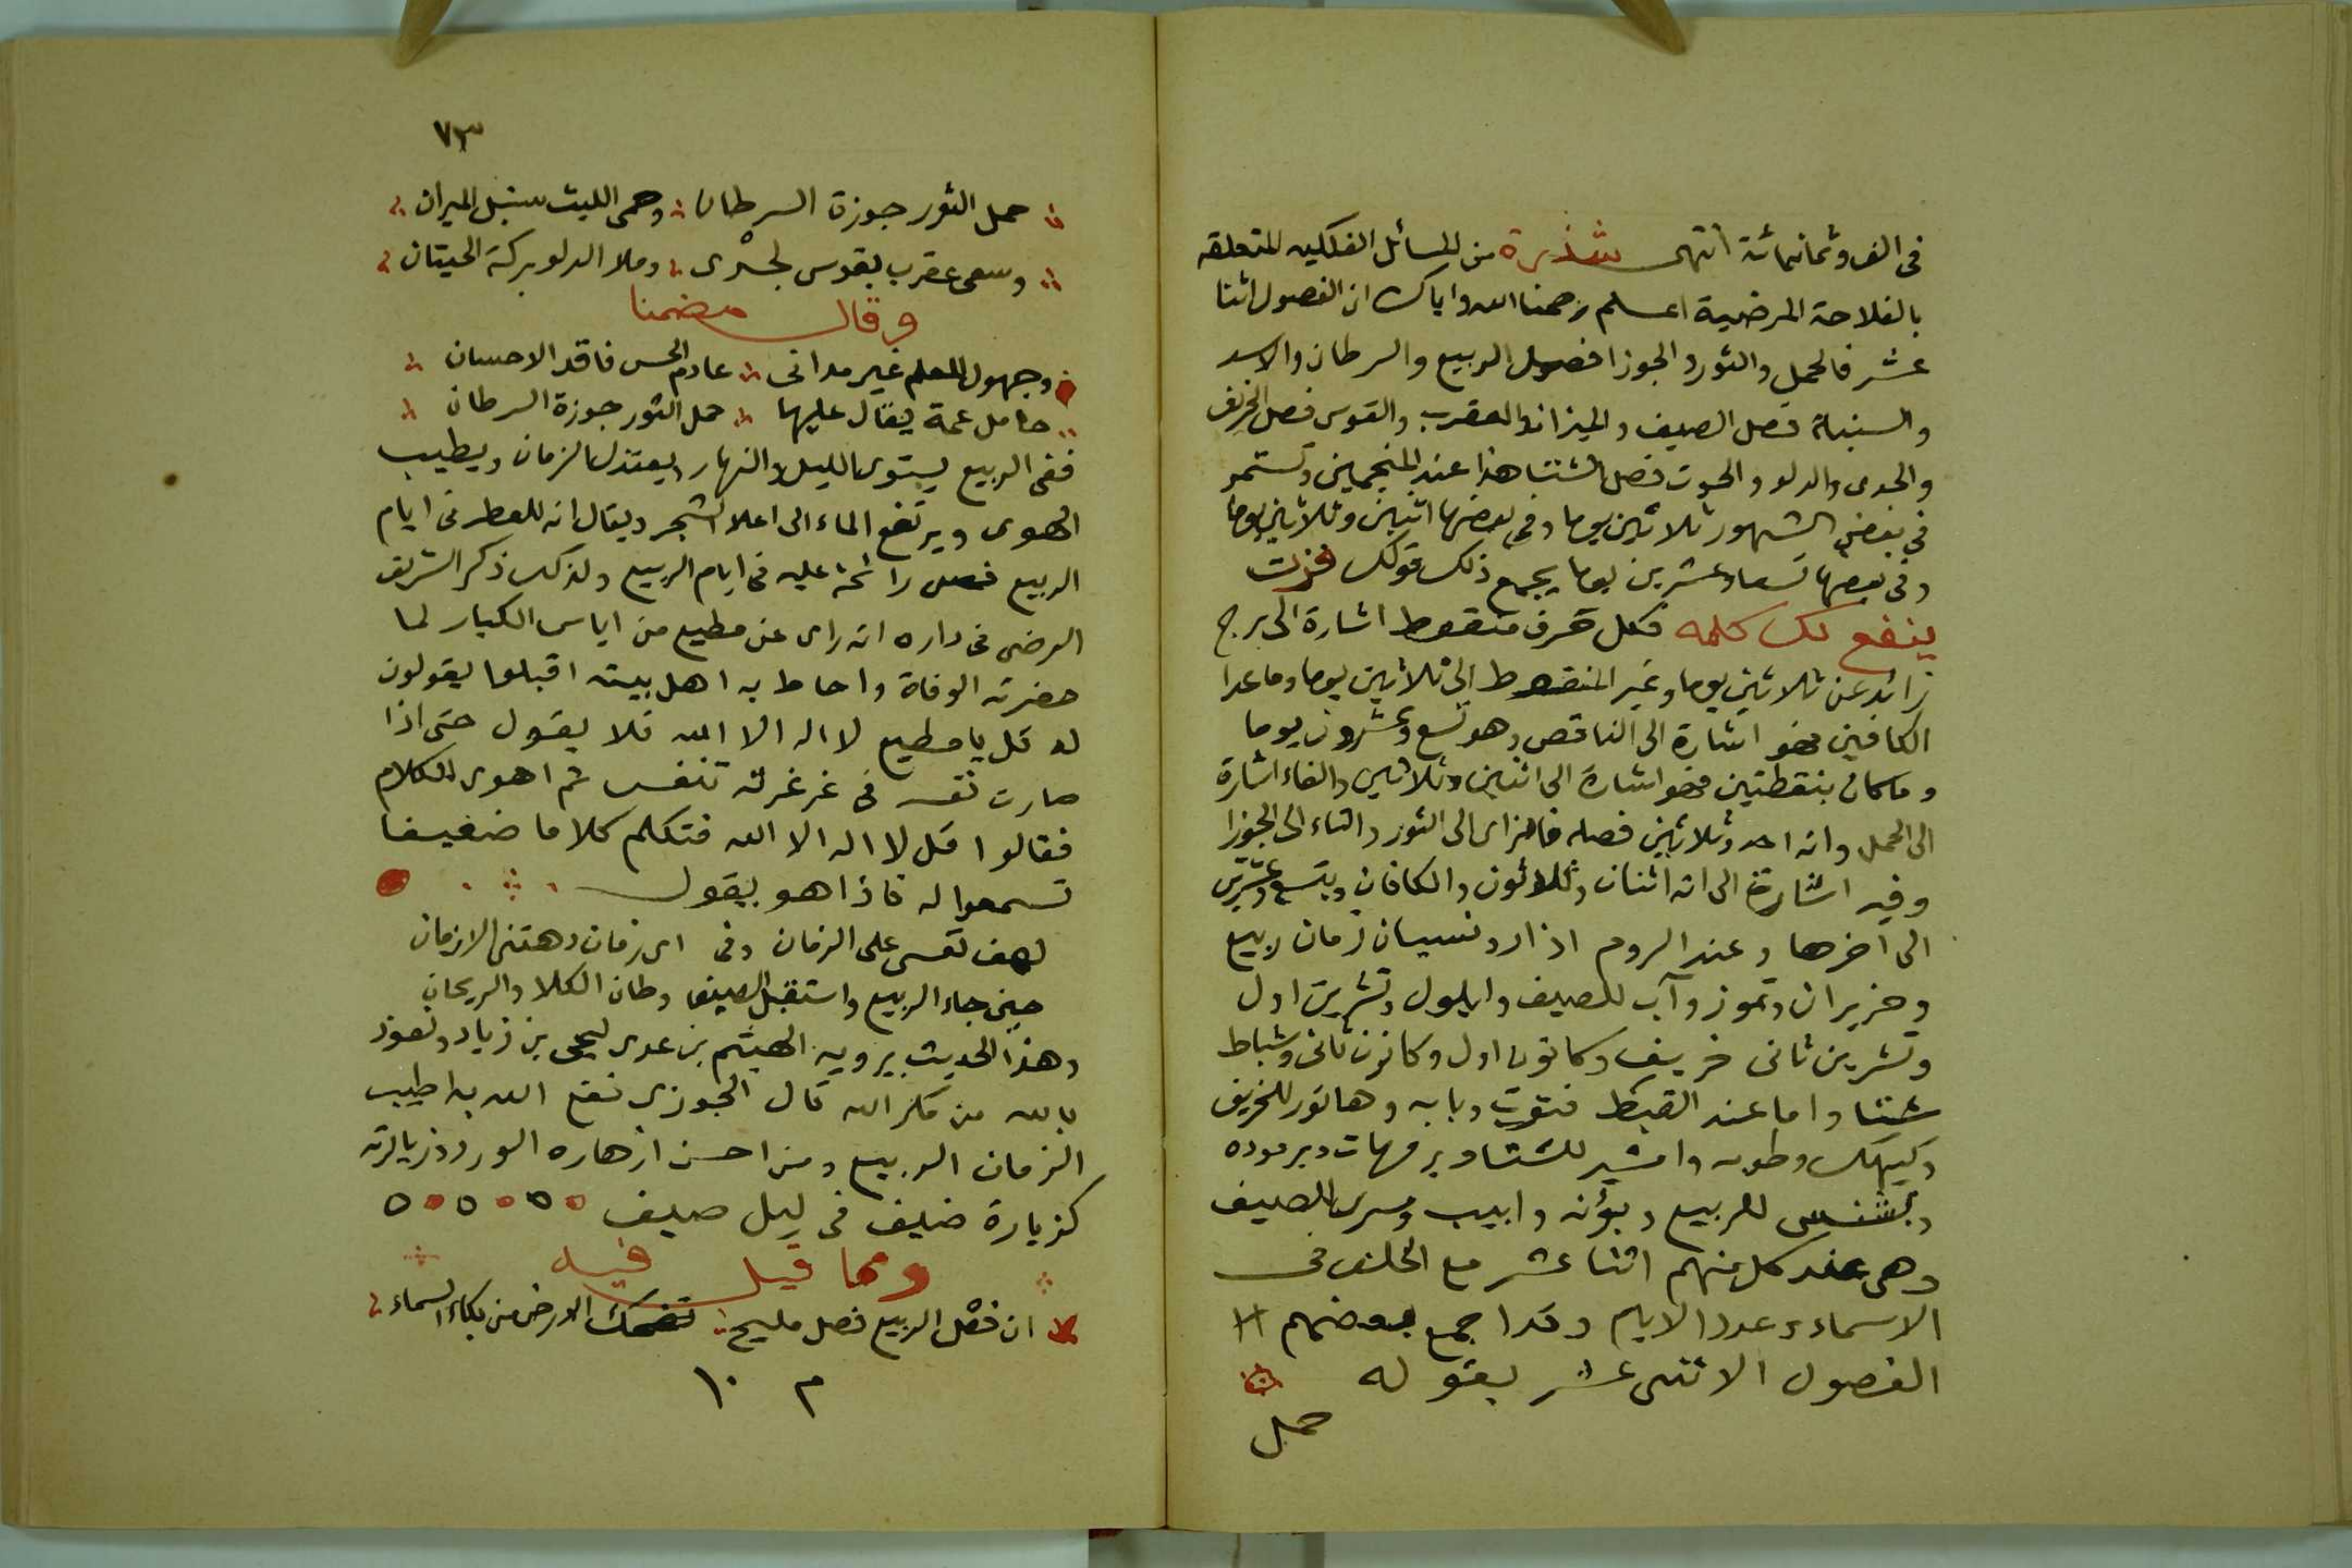 في الف وثمانمائة انتهى شذرة من المسائل الفلكيه المتعلقه
بالفلاحة المرضية اعلم رحمنا الله واياك ان الفصول اثنا
عشر فالحمل والثور والجوزا فصول الربيع والسرطان والاسد
والسنبلة فصل الصيف والميزان والعقرب والقوس فصل الخريف
والجدى والدلو والحوت فصل الشتا هذا عند المنجمين وتستمر
في بعض الشهور ثلاثين يوما وفي بعضها اثنين وثلاثين يوما
وفى بعضها تسعا وعشرين يوما يجمع ذلك قولك فزت
ينفع لك كلمه فكل حرف منقوط اشارة الى برج
زائد عن ثلاثين يوما وغير المنقوط الى ثلاثين يوما وما عدا
الكافين فهو اشارة الى الناقص وهو تسع وعشرون يوما
وما كان بنقطتين فهو اشارة الى اثنين وثلاثين والفاء اشارة
الى الحمل وانه احد وثلاثين فصله فالزاى الى الثور والتاء الى الجوزا
وفيه اشارة الى انه اثنان وثلاثون والكافان بتسع وعشرين
الى آخرها وعند الروم اذار ونسيان زمان ربيع
وحزيران وتموز وآب للصيف وايلول وتشرين اول
وتشرين ثانى خريف وكانون اول وكانون ثانى وشباط
شتا واما عند القبط فتوت وبابه وهاتور للخريف
وكيهك وطوبه وامشير للشتا وبرمهات وبرموده
وبشنس للربيع وبؤنه وابيب ومسرى للصيف
وهى عند كل منهم اثنا عشر مع الخلف فى
الاسماء وعدد الايام وقد جمع بعضهم
الفصول الاثنى عشر بقوله
حمل
٧٣
حمل الثور جوزة السرطان وحمى الليث سنبل الميزان
وسعى عقرب بقوس لجدى وملا الدلو بركة الحيتان
وقال مضمنا
وجهول المعلم غير مدانى عادم الحس فاقد الاحسان
حامل عمة يقال عليها حمل الثور جوزة السرطان
ففى الربيع يستوى الليل والنهار ويعتدل الزمان ويطيب
الهوى ويرتفع الماء الى اعلا الشجر ويقال انه للعطر فى ايام
الربيع فضل رائحة عليه فى ايام الربيع ولذلك ذكر الشريف
الرضى فى داره انه راى عن مطيع من اياس الكبار لما
حضرته الوفاة واحاط به اهل بيته اقبلوا يقولون
له قل يا مطيع لا اله الا الله فلا يقول حتى اذا
صارت نفسه فى غرغرته تنفس ثم اهوى للكلام
فقالوا قل لا اله الا الله فتكلم كلاما ضعيفا
تسمعوا له فاذا هو يقول
لهف نفسى على الزمان وفى اى زمان دهتنى الازمان
حين جاء الربيع واستقبل الصيف وطان الكلا والريحان
وهذا الحديث يرويه الهيثم بن عدى ليحيى بن زياد ونعوذ
بالله من مكر الله قال الجوزى نفع الله به اطيب
الزمان الربيع ومن احسن ازهاره الورد وزيارته
كزيارة ضيف فى ليل صيف
ومما قيل فيه
ان فصل الربيع فصل مليح تضحك الارض من بكاء السماء
م ١٠